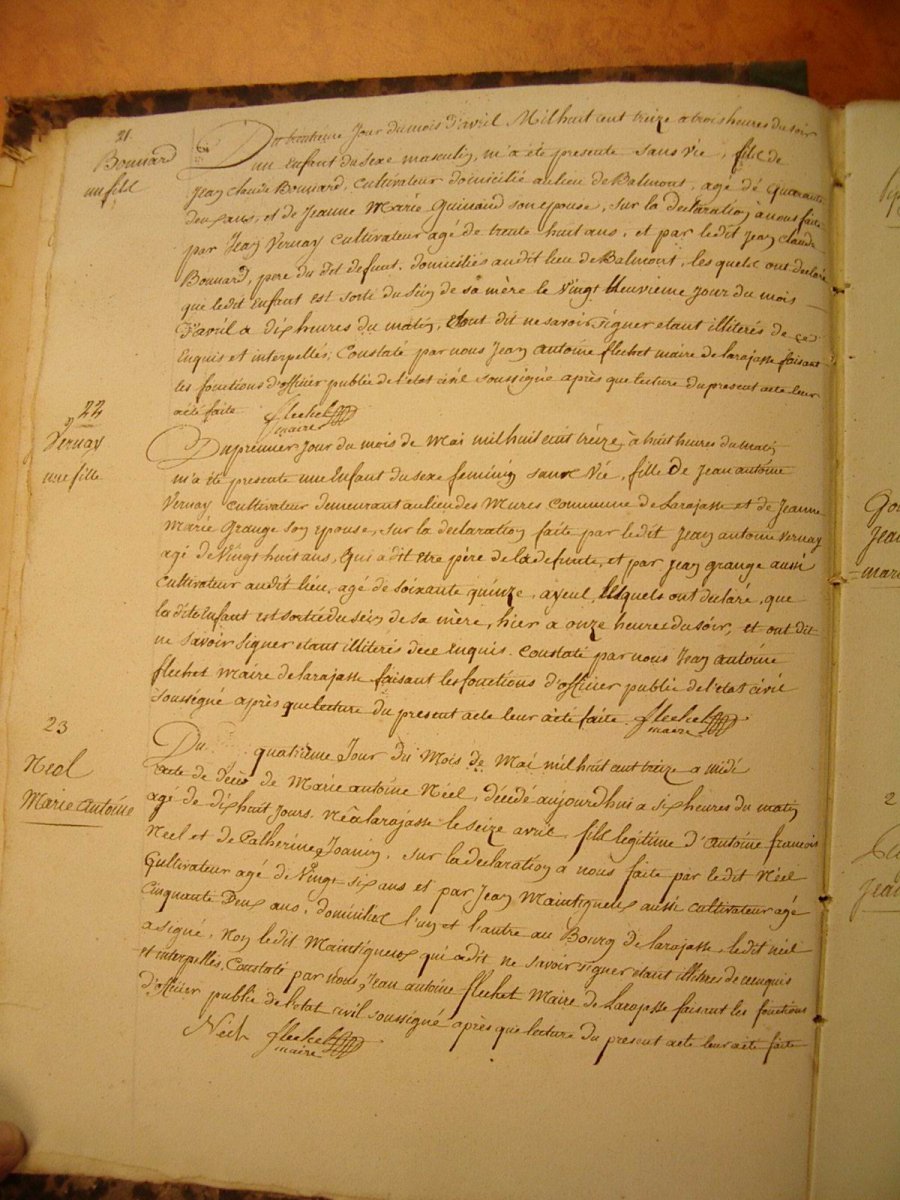 21
Bonnard
un fils
Du trentieme Jour du mois d'avril Mil huit cent treize a trois heures du soir
un Enfant du sexe masculin, m'a eté presenté sans vie, fils de
Jean Claude Bonnard, cultivateur domicilié au lieu de Balmont, agé de quarante
deux ans, et de Jeanne Marie Guinand son epouse, sur la declaration à nous faite
par Jean Vernay cultivateur agé de trente huit ans, et par le dit Jean Claude
Bonnard, pere du dit defunt, domiciliés audit lieu de Balmont, les quels ont declaré
que le dit Enfant est sorti du sein de sa mère le Vingt Neuvieme Jour du mois
d'avril a dix heures du matin, et ont dit ne savoir signer etant illiterés de ce
Enquis et interpellés, Constaté par nous Jean antoine flechet maire de larajasse faisant
les fonctions d'officier public de l'etat civil soussigné après que lecture du present acte leur
a eté faite flechet
maire
22
Vernay
une fille
Du premier Jour du mois de Mai mil huit cent treize, à huit heures du matin
m'a eté presenté une Enfant du sexe feminin sans Vie, fille de Jean antoine
Vernay cultivateur demeurant au lieu des Mures commune de Larajasse et de Jeanne
Marie Grange son epouse, sur la declaration faite par le dit Jean antoine Vernay
agé de Vingt huit ans, qui a dit être père de la defunte, et par Jean grange aussi
cultivateur audit lieu, agé de soixante quinze, ayeul, lesquels ont declaré, que
la dite Enfant est sortie du sein de sa mère, hier a onze heures du soir, et ont dit
ne savoir signer etant illiterés de ce Enquis. Constaté par nous Jean antoine
flechet Maire de larajasse faisant les fonctions d'officier public de l'etat civil
sousségné après que lecture du present acte leur à eté faite. flechet
maire
23
Néel
Marie antoine
Du quatrième Jour du Mois de Mai mil huit cent treize a midi
acte de décès de Marie antoine Néel, décédé aujourdhui a six heures du matin
agé de dix huit Jours, Né à larajasse le seize avril, fils legitime d'antoine francois
Neel et de Catherine Joannin, sur la declaration a nous faite par le dit Néel
Cultivateur agé de Vingt six ans et par Jean Maintigneux aussi cultivateur agé
cinquante Deux ans, domiciliés l'un et l'autre au Bourg de larajasse, le dit neel
a signé, Non le dit Maintigneux qui a dit ne savoir signer etant illiterés de ce enquis
et interpellés, Constaté par nous, Jean antoine flechet Maire de Larajasse faisant les fonctions
d'officier public de l'etat civil soussigné après que lecture du present acte leur a eté faite
Neel flechet
maire
2